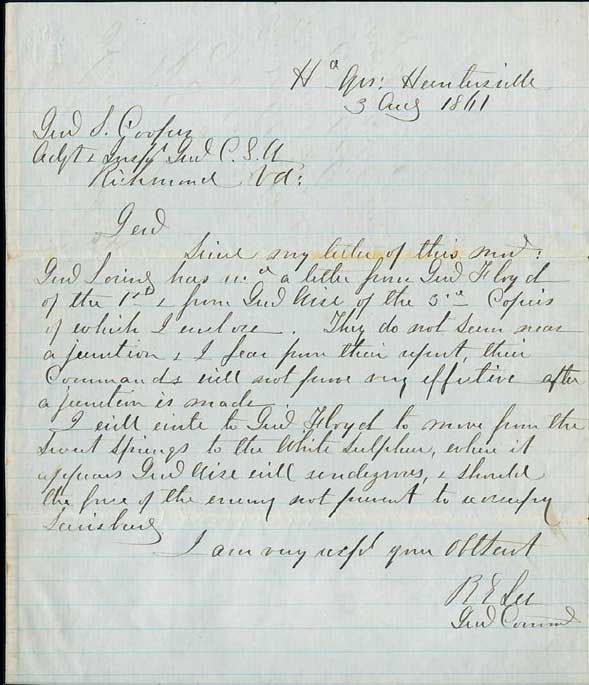 Hd Qrs: Huntersville
3 Aug 1861
Genl S. Cooper
Adjt & Inspr Genl C.S.A
Richmond Va:
Genl
Since my letter of this mor:
Genl Loring has recd a letter from Genl Floyd
of the 1st & from Genl Wise of the 3rd Copies
of which I enclose. They do not seem near
a junction & I fear from their report, their
Commands will not prove very effective after
a junction is made.
I will write to Genl Floyd to move from the
Sweet Springs to the White Sulphur, where it
appears Genl Wise will rendezvous, & should
the force of the enemy not prevent to occupy
Lewisburg
I am very respt your Obt Servt
R E Lee
Genl Commd